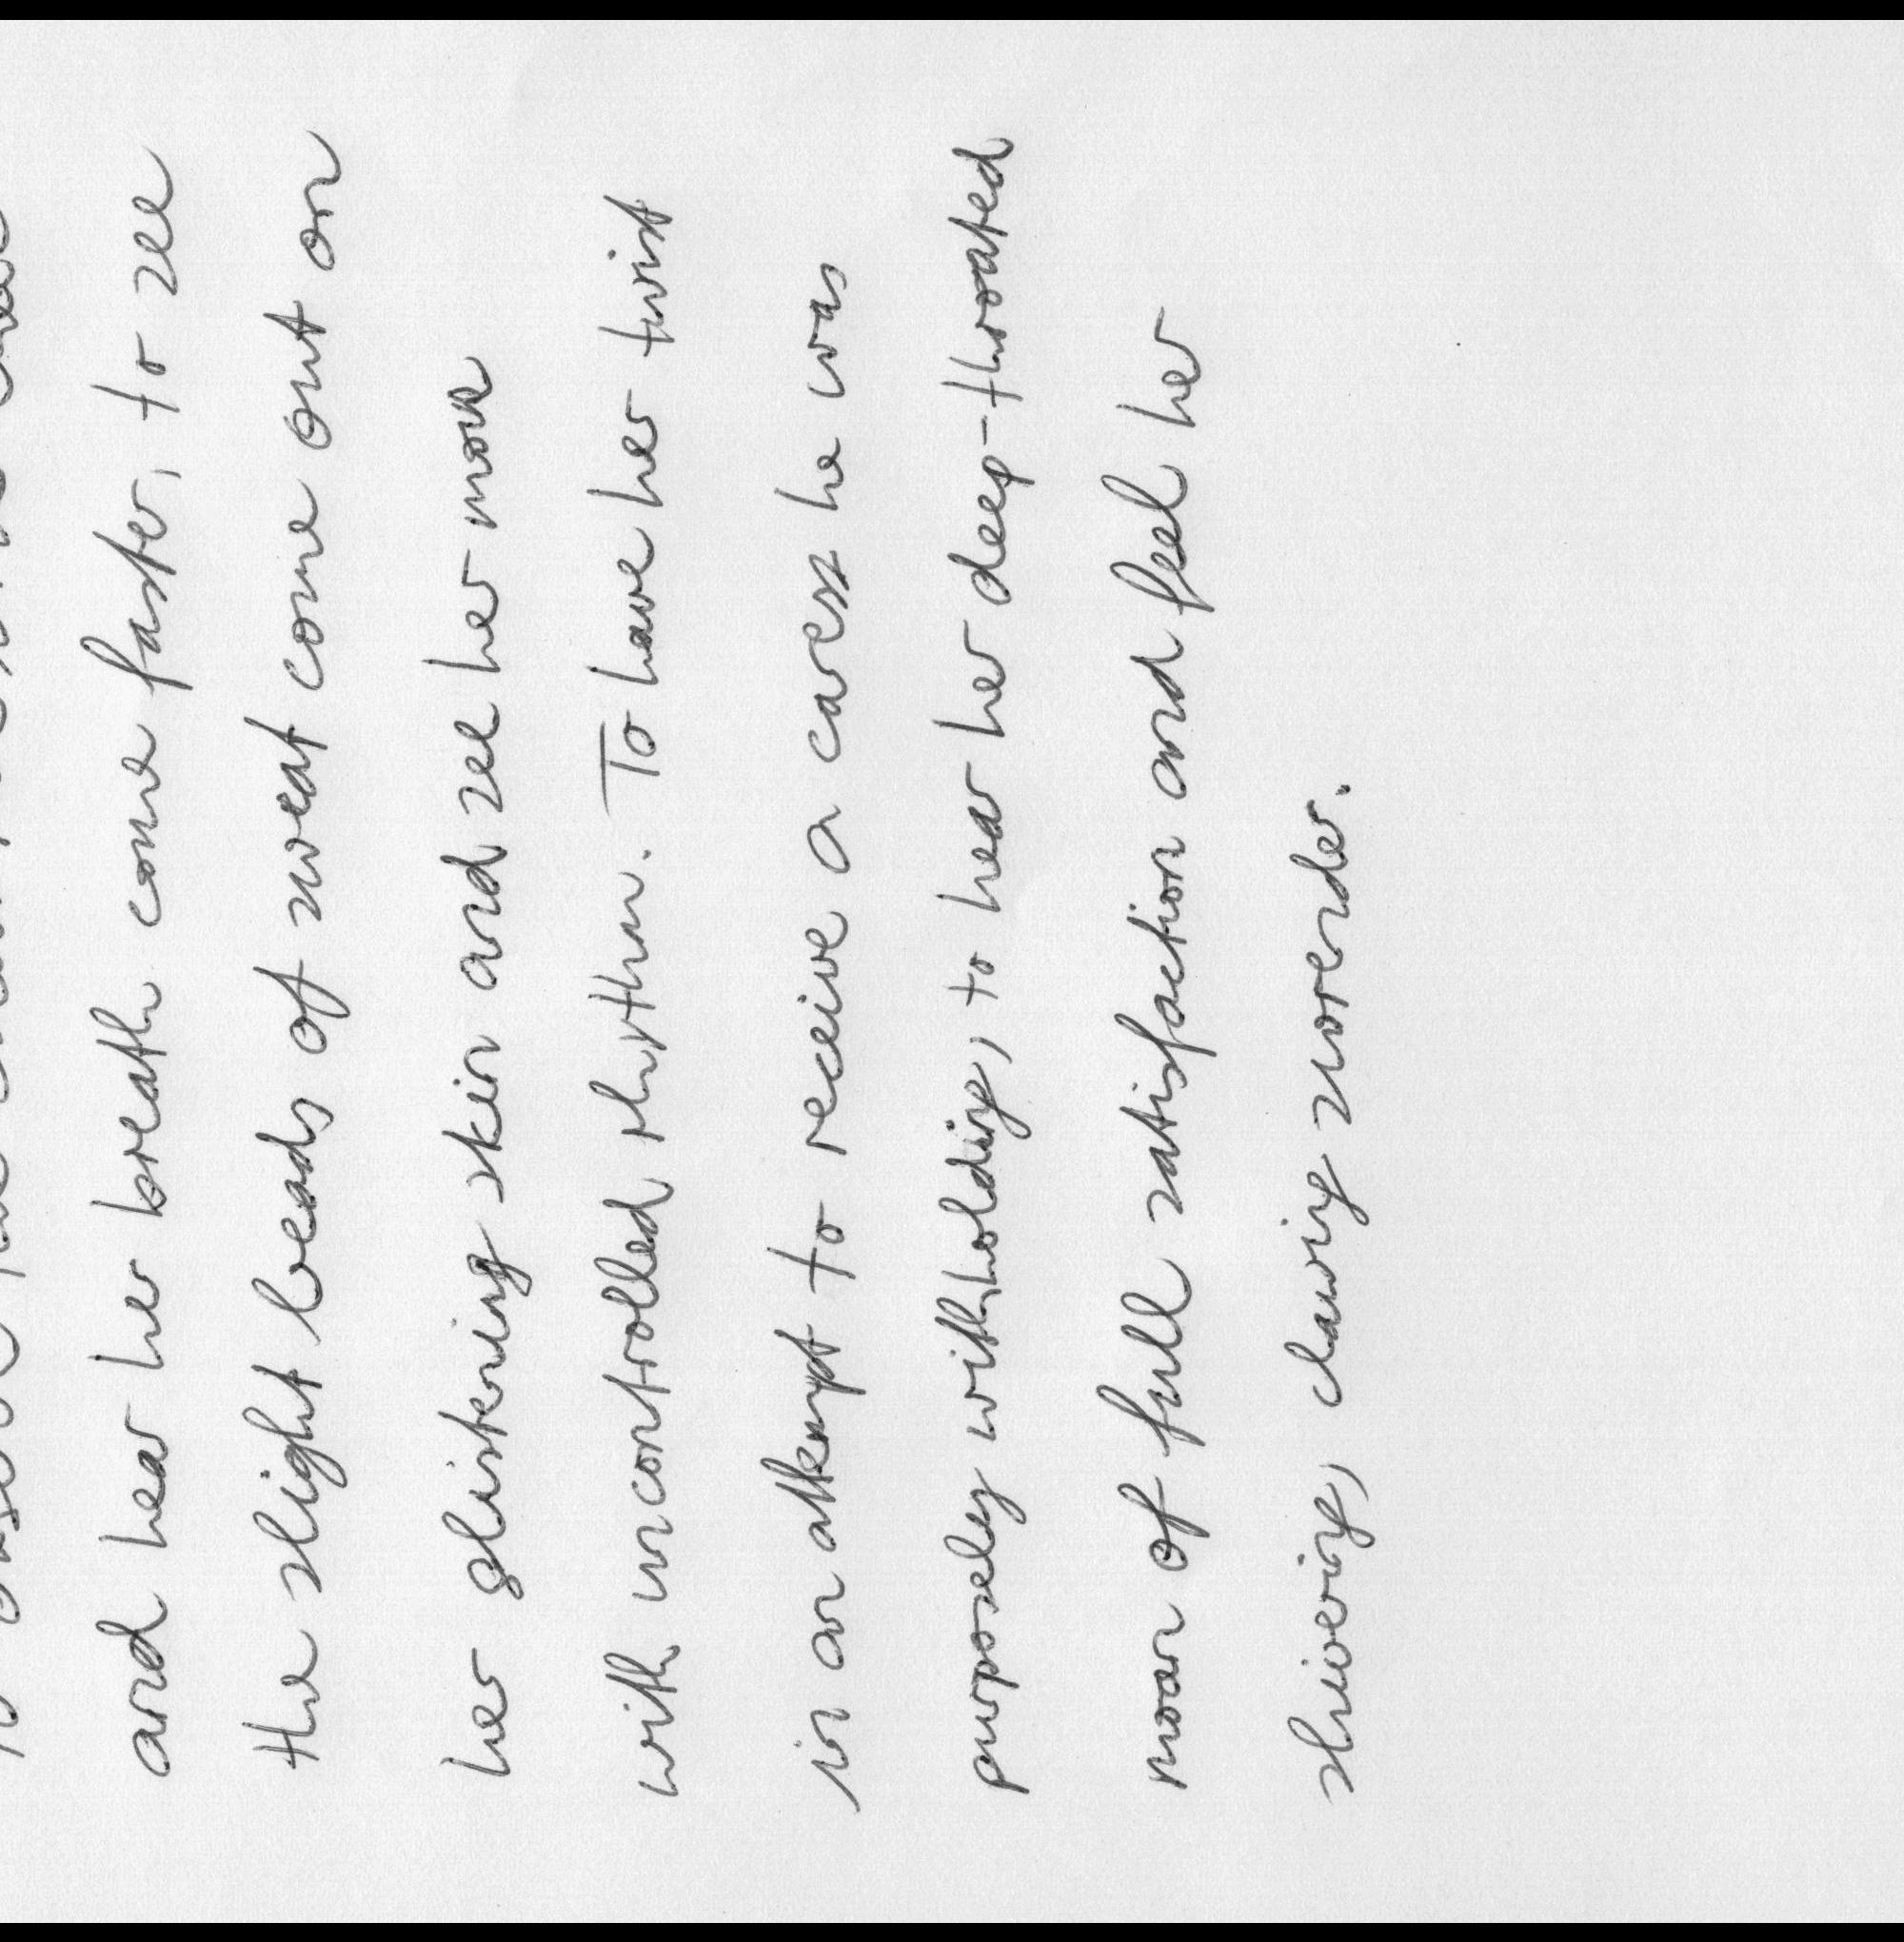 and hear her breath come faster, to see
the slight beads of sweat come out on
her glistening skin and see her move
with uncontrolled rhythm. To have her twist
in an attempt to receive a caress he was
purposely withholding, to hear her deep-throated
moan of full satisfaction and feel her
shivering, clawing surender.